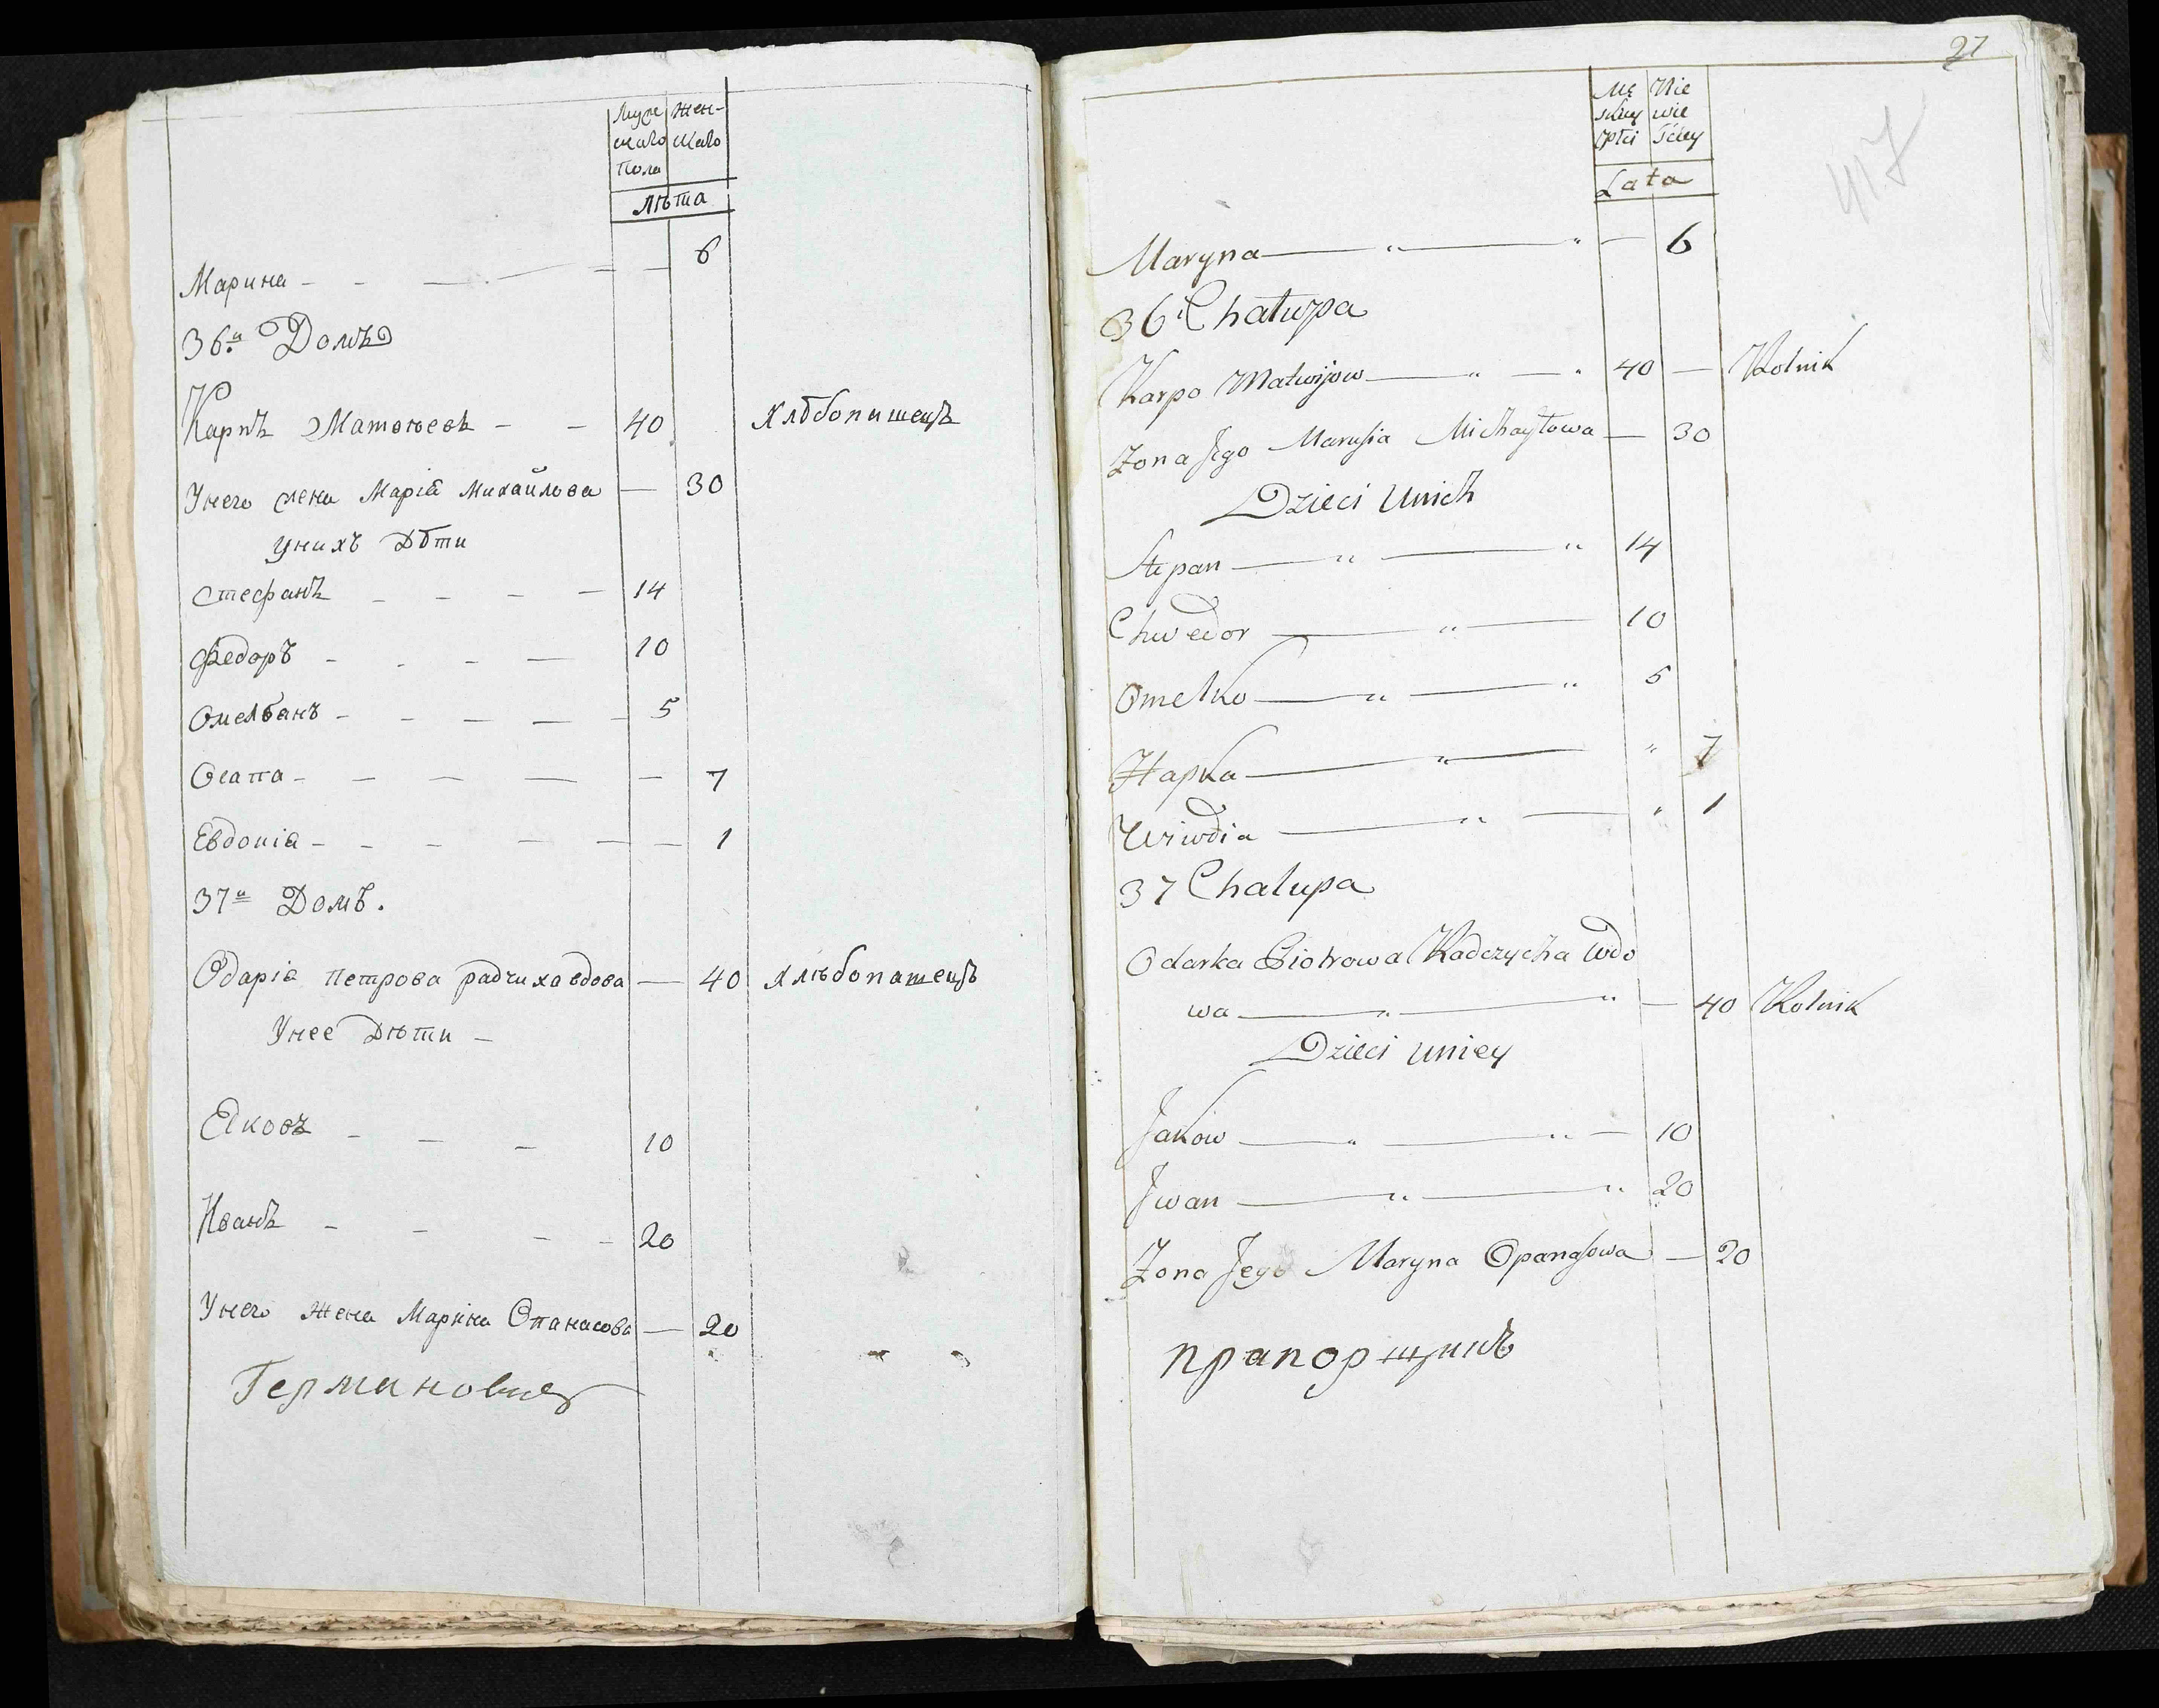 Муже Жен-
скаго скаго
Пола
Лѣта
Марина - - — — - — 6
36й Домъ
Карпъ Матвѣевъ - - 40 Хлѣбопашецъ
Унего жена Марія Михайлова — 30
Унихъ Дѣти
Стефанъ - - - - 14
Федоръ - - - — 10
Омельянъ - - - - - 5
Агапа - - - - - 7
Евдокія - - - - - - 1
37й Домъ.
Одарія Петрова радчиха вдова — 40 Хлѣбопашецъ
Унее Дѣти -
Яковъ - - - 10
Иванъ - - - - 20
Унего Жена Марина Опанасова — 20
27
417
Mę Nie
skiey wie
Płci ściey
Lata
Maryna — " — " — 6
36 Chałupa
Karpo Matwijow — " — " 40 — Rolnik
Zona Jego Marusia Michayłowa — 30
Dzieci Unich
Stepan — " — " 14
Chwedor — " — 10
Omelko — " — " 5
Hapka — " — " 7
Wiwdia — " — " 1
37 Chalupa
Odarka Piotrowa Radczycha wdo
wa — " — " — 40 Rolnik
Dzieci uniey
Jakow — " — " — 10
Jwan — " — " 20
Zona Jego Maryna Opanasowa — 20
прапорщикъ